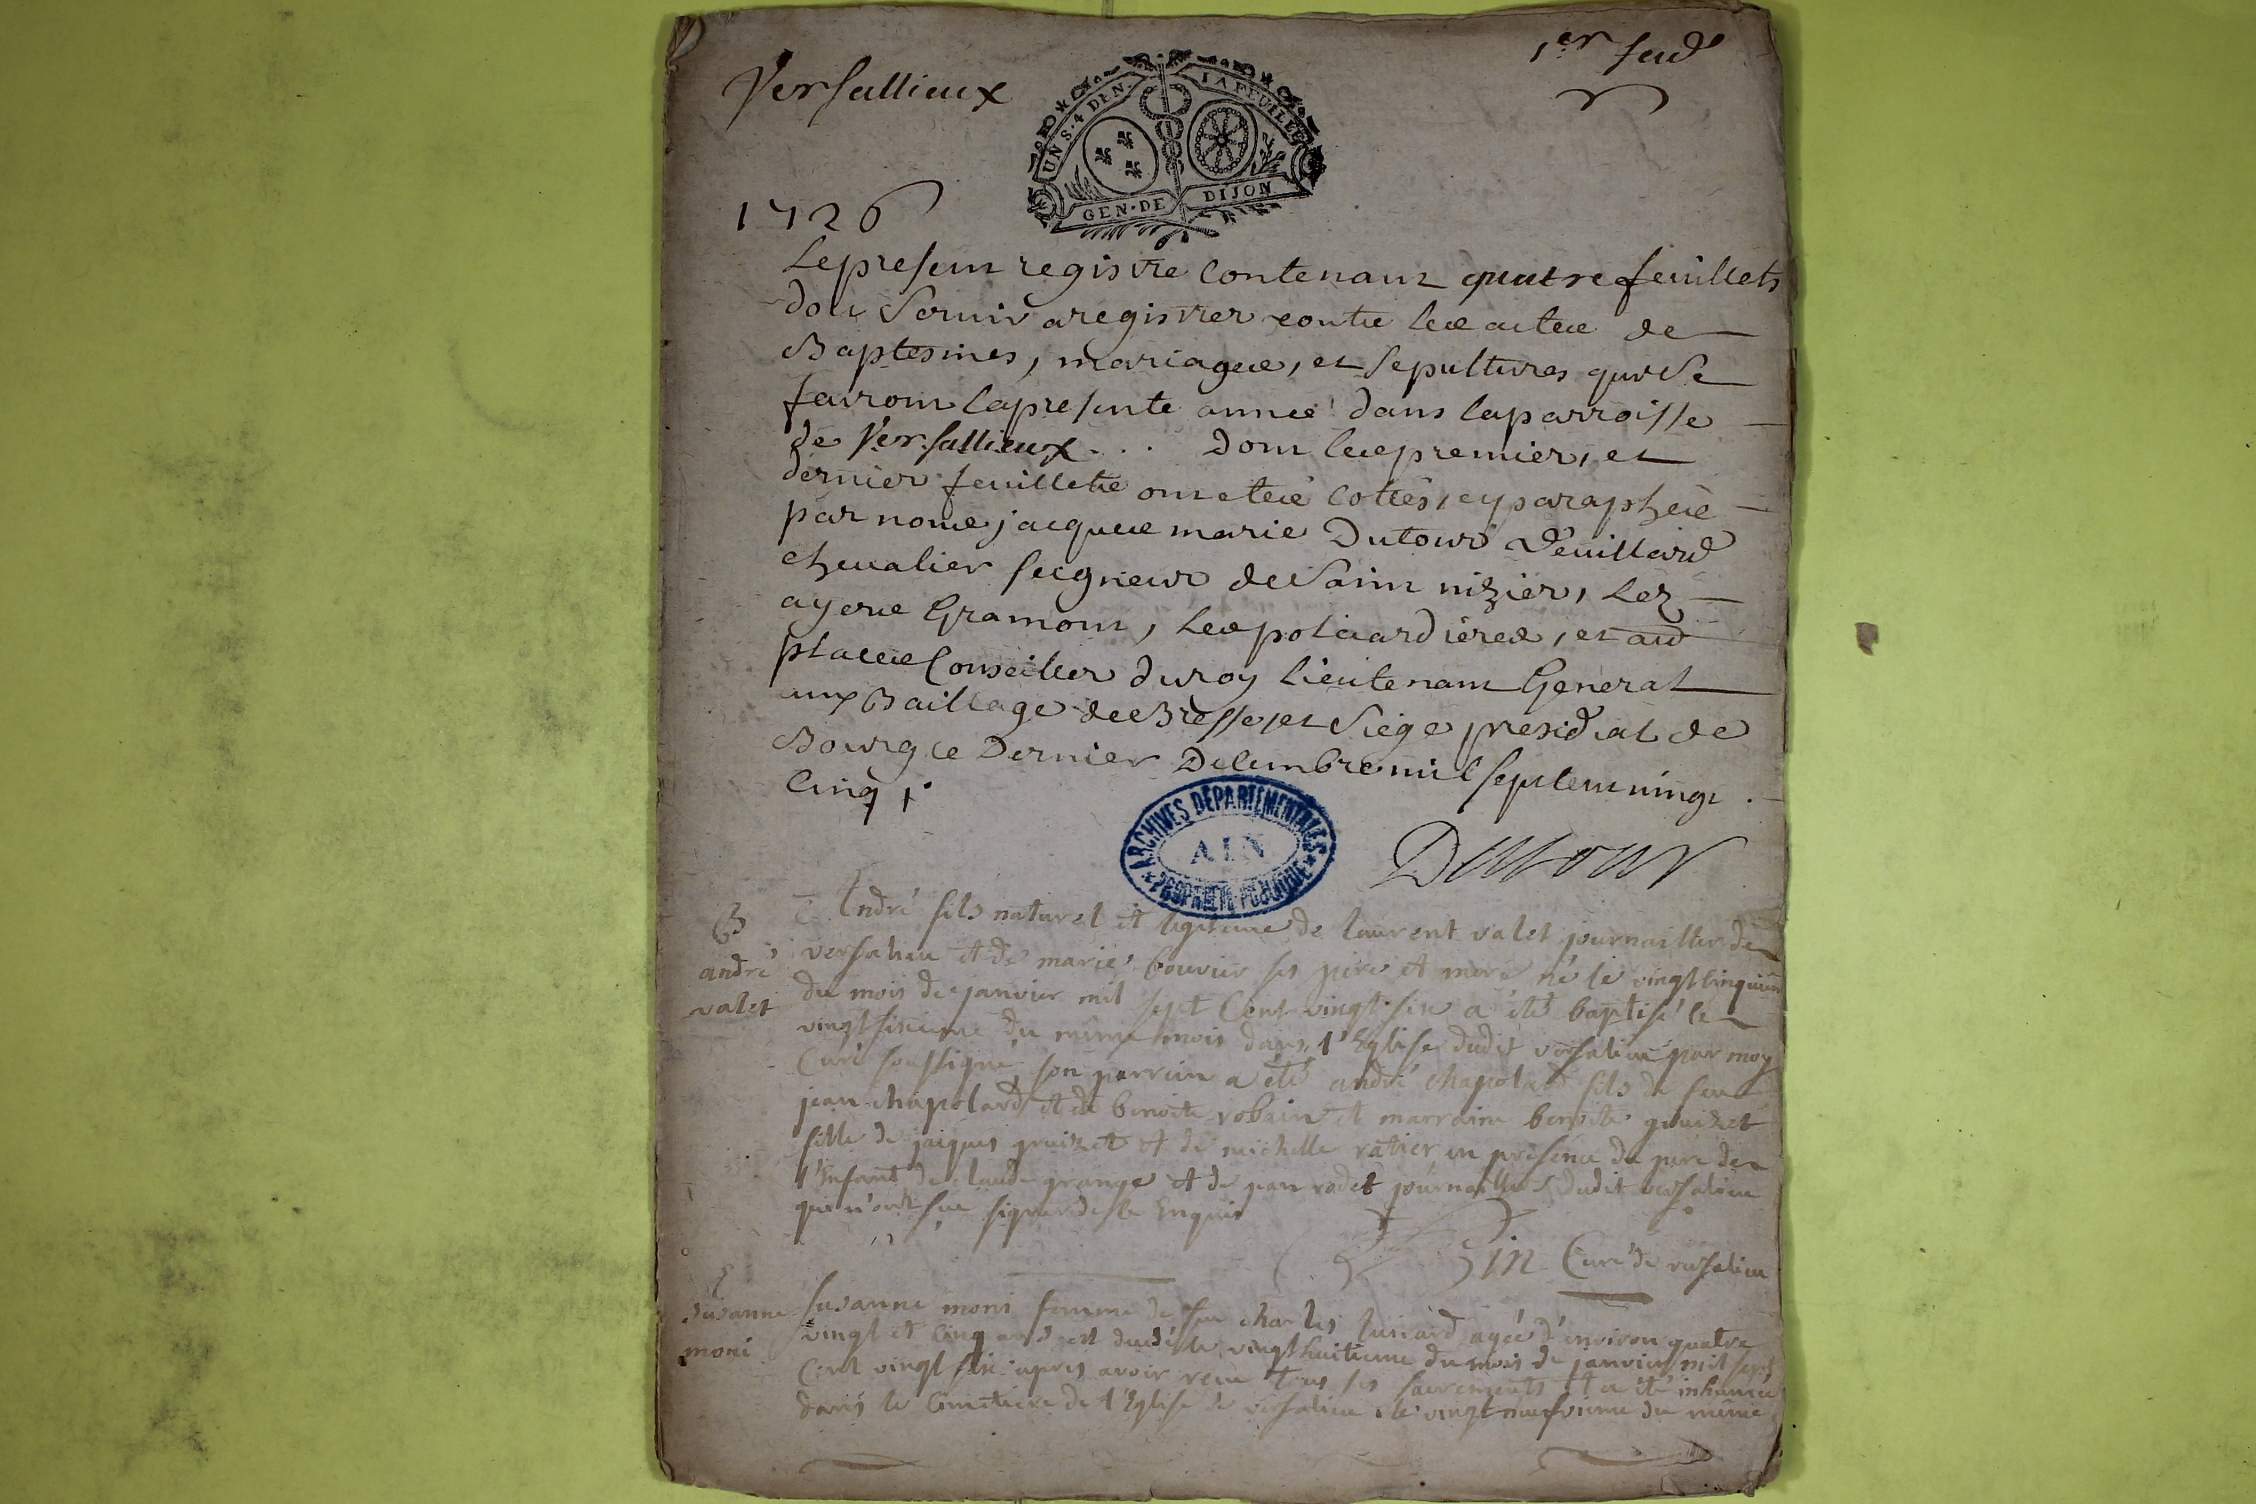 Versallieux
1er feud
UN S·4 DEN· LA FEUILLE
GEN·DE DIJON
1726
Le present registre Contenant quatre feuillets
doit Servir a registrer toutte les actes de
Baptesmes, mariages, et Sepultures qui Se
fairont la presente année dans la parroisse
de Versallieux... dont les premier, et
dernier feuillets ont etés cottés, et paraphés
par nous jacques marie Dutour Vuillard
chevalier seigneur de Saint nizier, Lez
Gramont, et aud
places Conseiller du roy Lieutenant General
aux Baillage de Bresse, et Siege presidial de
Bourg ce Dernier Decembre mil sept cent vingt
Cinq
Dutour
ARCHIVES DÉPARTEMENTALES
AIN
PROPRIÉTÉ PUBLIQUE
B
andré
valet
André fils naturel et legitime de laurent valet journaillier de
versalieu et de marie bouvier ses pere et mere né le vingt cinquiem
du mois de janvier mil sept Cent vingt six a été baptisé le
vingt sixieme du même mois dans l'Eglise dudit versalieu par moy
Curé soussigné, son parrain a été andré chapolard fils de feu
jean chapolard et de benoite robin et marraine benoite gruizet
fille de jaques gruizet et de michelle ratier en presence du pere de
l'Enfant de claude grange et de jean rodet journailliers dudit versalieu
qui n'ont sue signer de ce Enquis
Curé de versalieu
susanne
moni
susanne moni femme de feu charles agée d'environ quatre
vingt et cinq ans est decedée le vingt huitieme du mois de janvier mil sept
Cent vingt six apres avoir receu tous ses sacrements et a été inhumée
dans le Cimetiere de l'Eglise de versalieu le vingt neufvieme du même